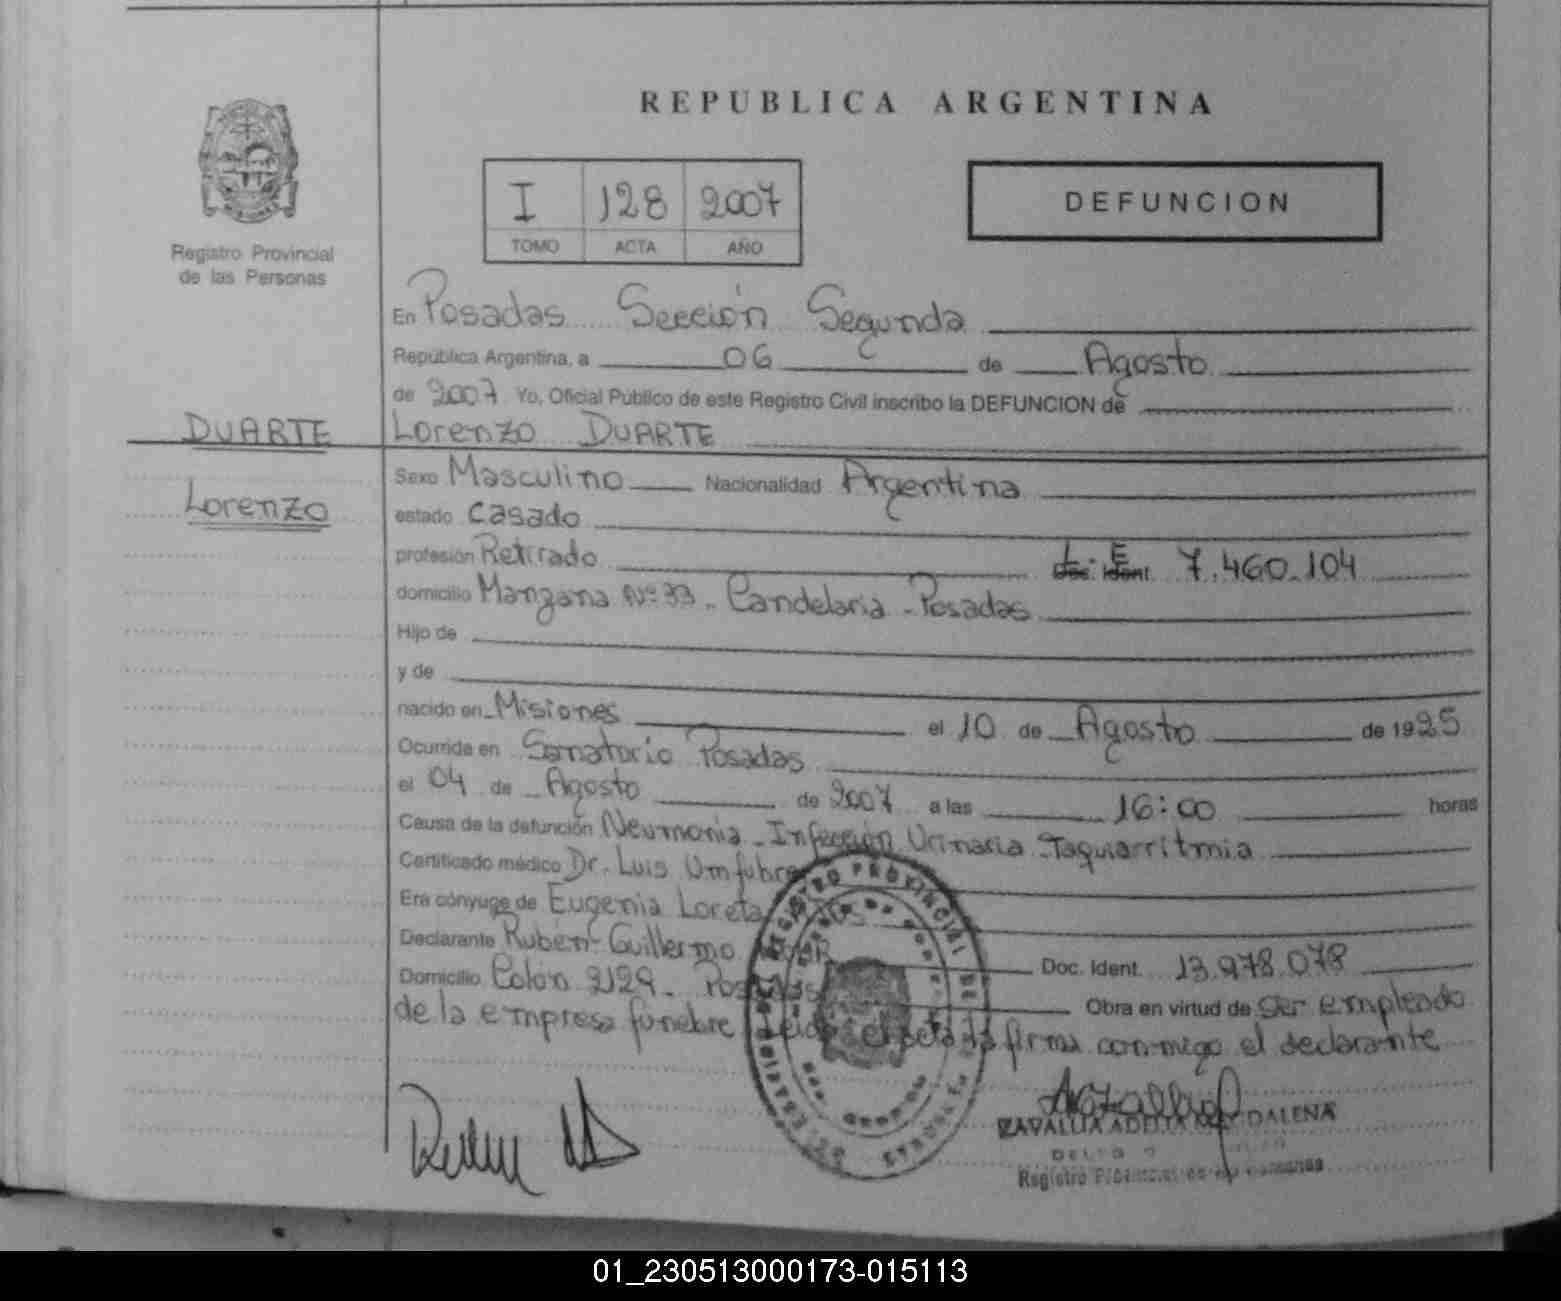 REPUBLICA ARGENTINA
I 128 2007
TOMO ACTA AÑO
DEFUNCION
Registro Provincial
de las Personas
En Posadas Sección Segunda
República Argentina, a 06 de Agosto
de 2007 Yo, Oficial Público de este Registro Civil inscribo la DEFUNCION de
DUARTE
Lorenzo
Lorenzo DUARTE
Sexo Masculino Nacionalidad Argentina
estado Casado
profesión Retirado L. E. 7.460.104
domicilio Manzana Nº 33 - Candelaria - Posadas
Hijo de
y de
nacido en Misiones el 10 de Agosto de 1925
Ocurrida en Sanatorio Posadas
el 04 de Agosto de 2007 a las 16:00 horas
Causa de la defunción Neumonia - Infección Urinaria - Taquiarritmia
Certificado médico Dr. Luis
Era cónyuge de Eugenia Loreta
Declarante Rubén Guillermo Doc. Ident. 13.978.078
Domicilio Colón 2129 - Posadas Obra en virtud de ser empleado
de la empresa fúnebre Leida el acta la firma conmigo el declarante
REGISTRO PROVINCIAL DE
ADELIA MAGDALENA
Registro Provincial de las Personas
01_230513000173-015113